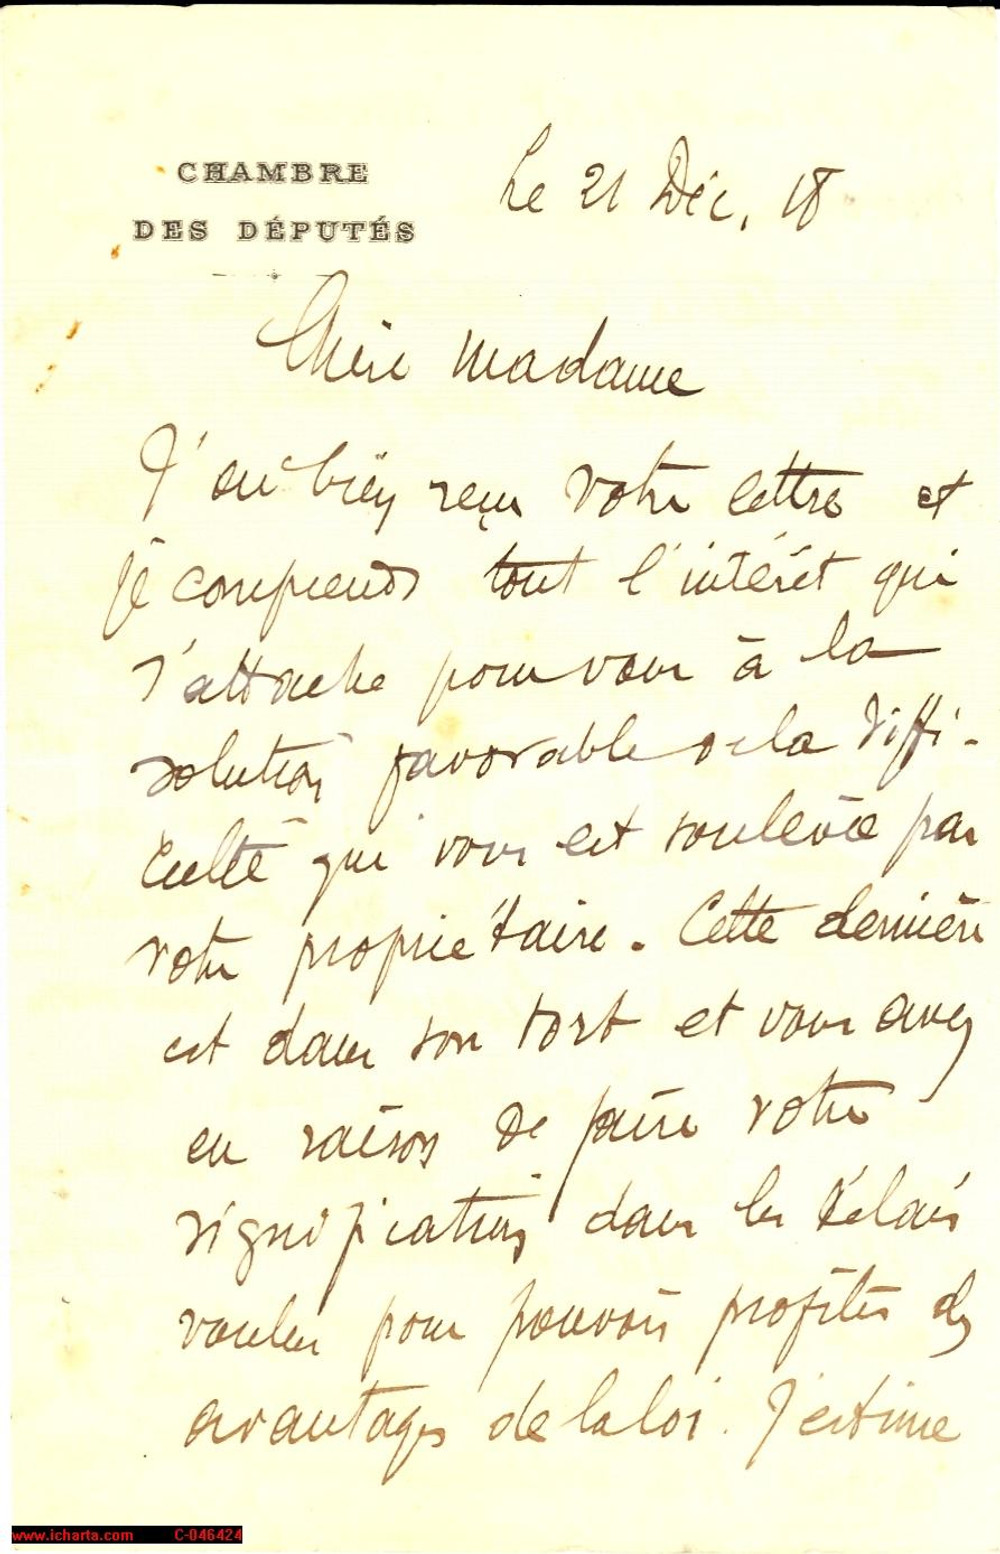 CHAMBRE
DES DÉPUTÉS
Le 21 Déc. 18
Chère Madame
J'ai bien reçu votre lettre et
je comprends tout l'intérêt qui
s'attache pour vous à la
solution favorable de la diffi-
culté qui vous est soulevée par
votre propriétaire. Cette dernière
est dans son tort et vous avez
eu raison de faire votre
signification dans les délais
voulus pour pouvoir profiter des
avantages de la loi. J'estime
www.icharta.com C-046424